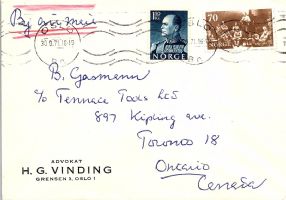 By air mail
OSLO
30.9.71.18-19
BC
1,80 Kr
NORGE
70
NORGE
B. Gasmann
c/o Tennace Tools Ltd
897 Kipling ave.
Toronto 18
Ontario
Canada
ADVOKAT
H. G. VINDING
GRENSEN 3, OSLO 1